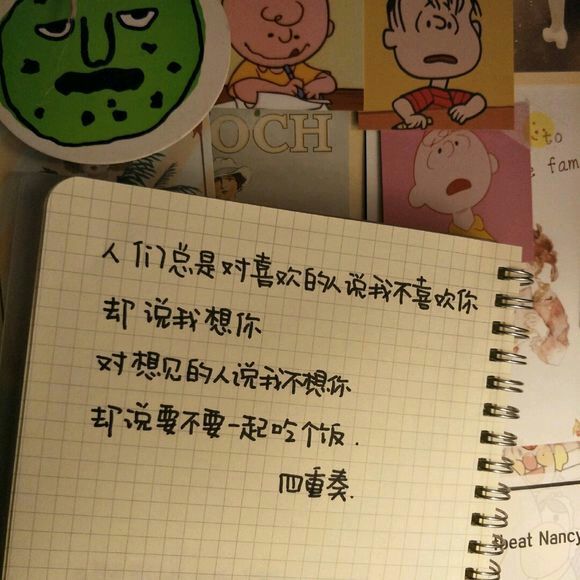 OCH
to
fam
人们总是对喜欢的人说我不喜欢你
却说我想你
对想见的人说我不想你
却说要不要一起吃个饭.
四重奏.
beat Nancy